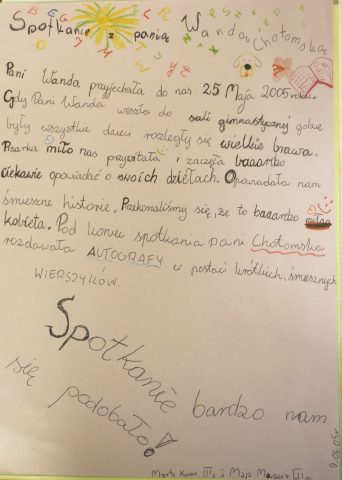 Spotkanie z panią Wandą Chotomską
Pani Wanda przyjechała do nas 25 Maja 2005 roku.
Gdy Pani Wanda weszła do sali gimnastycznej gdzie
były wszystkie dzieci rozległy się wielkie brawa.
Pisarka miło nas przywitała i zaczęła baaardzo
ciekawie opowiadać o swoich dziełach. Opowiadała nam
śmieszne historie. Przekonaliśmy się, że to baaardzo miłaa
kobieta. Pod koniec spotkania pani Chotomska
rozdawała AUTOGRAFY w postaci krótkich, śmiesznych
WIERSZYKÓW.
Spotkanie bardzo nam
się podobało!
Marta i Maja Mazur